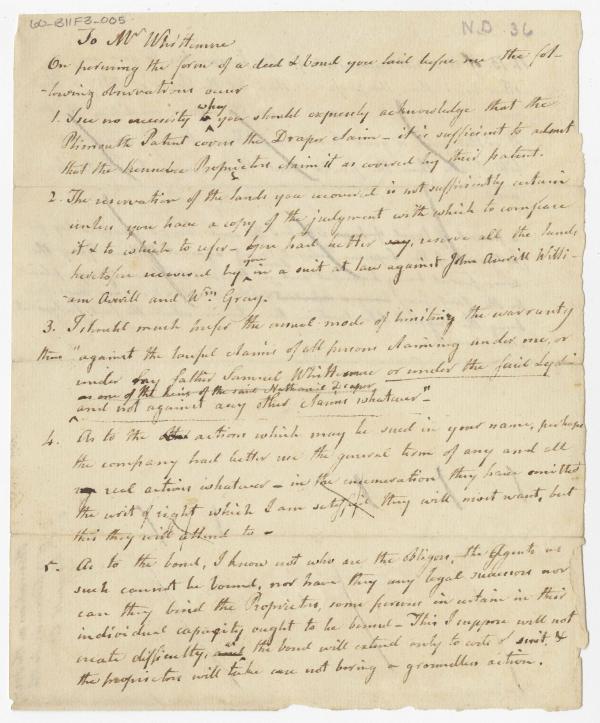 60-B11F3-005
N.D 36
To Mr Whittemore
On perusing the form of a deed & bond you laid before me the fol-
-lowing observations occur
1. I see no necessity why you should expressly acknowledge that the
Plimouth Patent covers the Draper claim - it is sufficient to admit
that the Kennebec Proprietors claim it as covered by their patent.
2. The reservation of the lands you recovered is not sufficiently certain
unless you have a copy of the judgment with which to compare
it & to which to refer - you had better say, reserve all the lands
heretofore recovered by you in a suit at law against John Averill Willi-
-am Averill and Wm Gray.
3. I should much prefer the usual mode of limiting the warranty
thus "against the lawful claims of all persons claiming under me, or
under my father Samuel Whittemore or under the said Lydia
as one of the heirs of the said Nathaniel Draper
and not against any other claims whatever"-
4. As to the actions which may be sued in your name, perhaps
the company had better use the general term of any and all
real actions whatever - in the enumeration they have omitted
the writ of right which I am satisfied they will most want, but
this they will attend to -
5. As to the bond, I know not who are the Obligors, the Agents as
such cannot be bound, nor have they any legal successors nor
can they bind the Proprietors, some persons in certain in their
individual capacity ought to be bound - This I suppose will not
create difficulty, as the bond will extend only to costs of suit, &
the proprietors will take care not bring a groundless action.